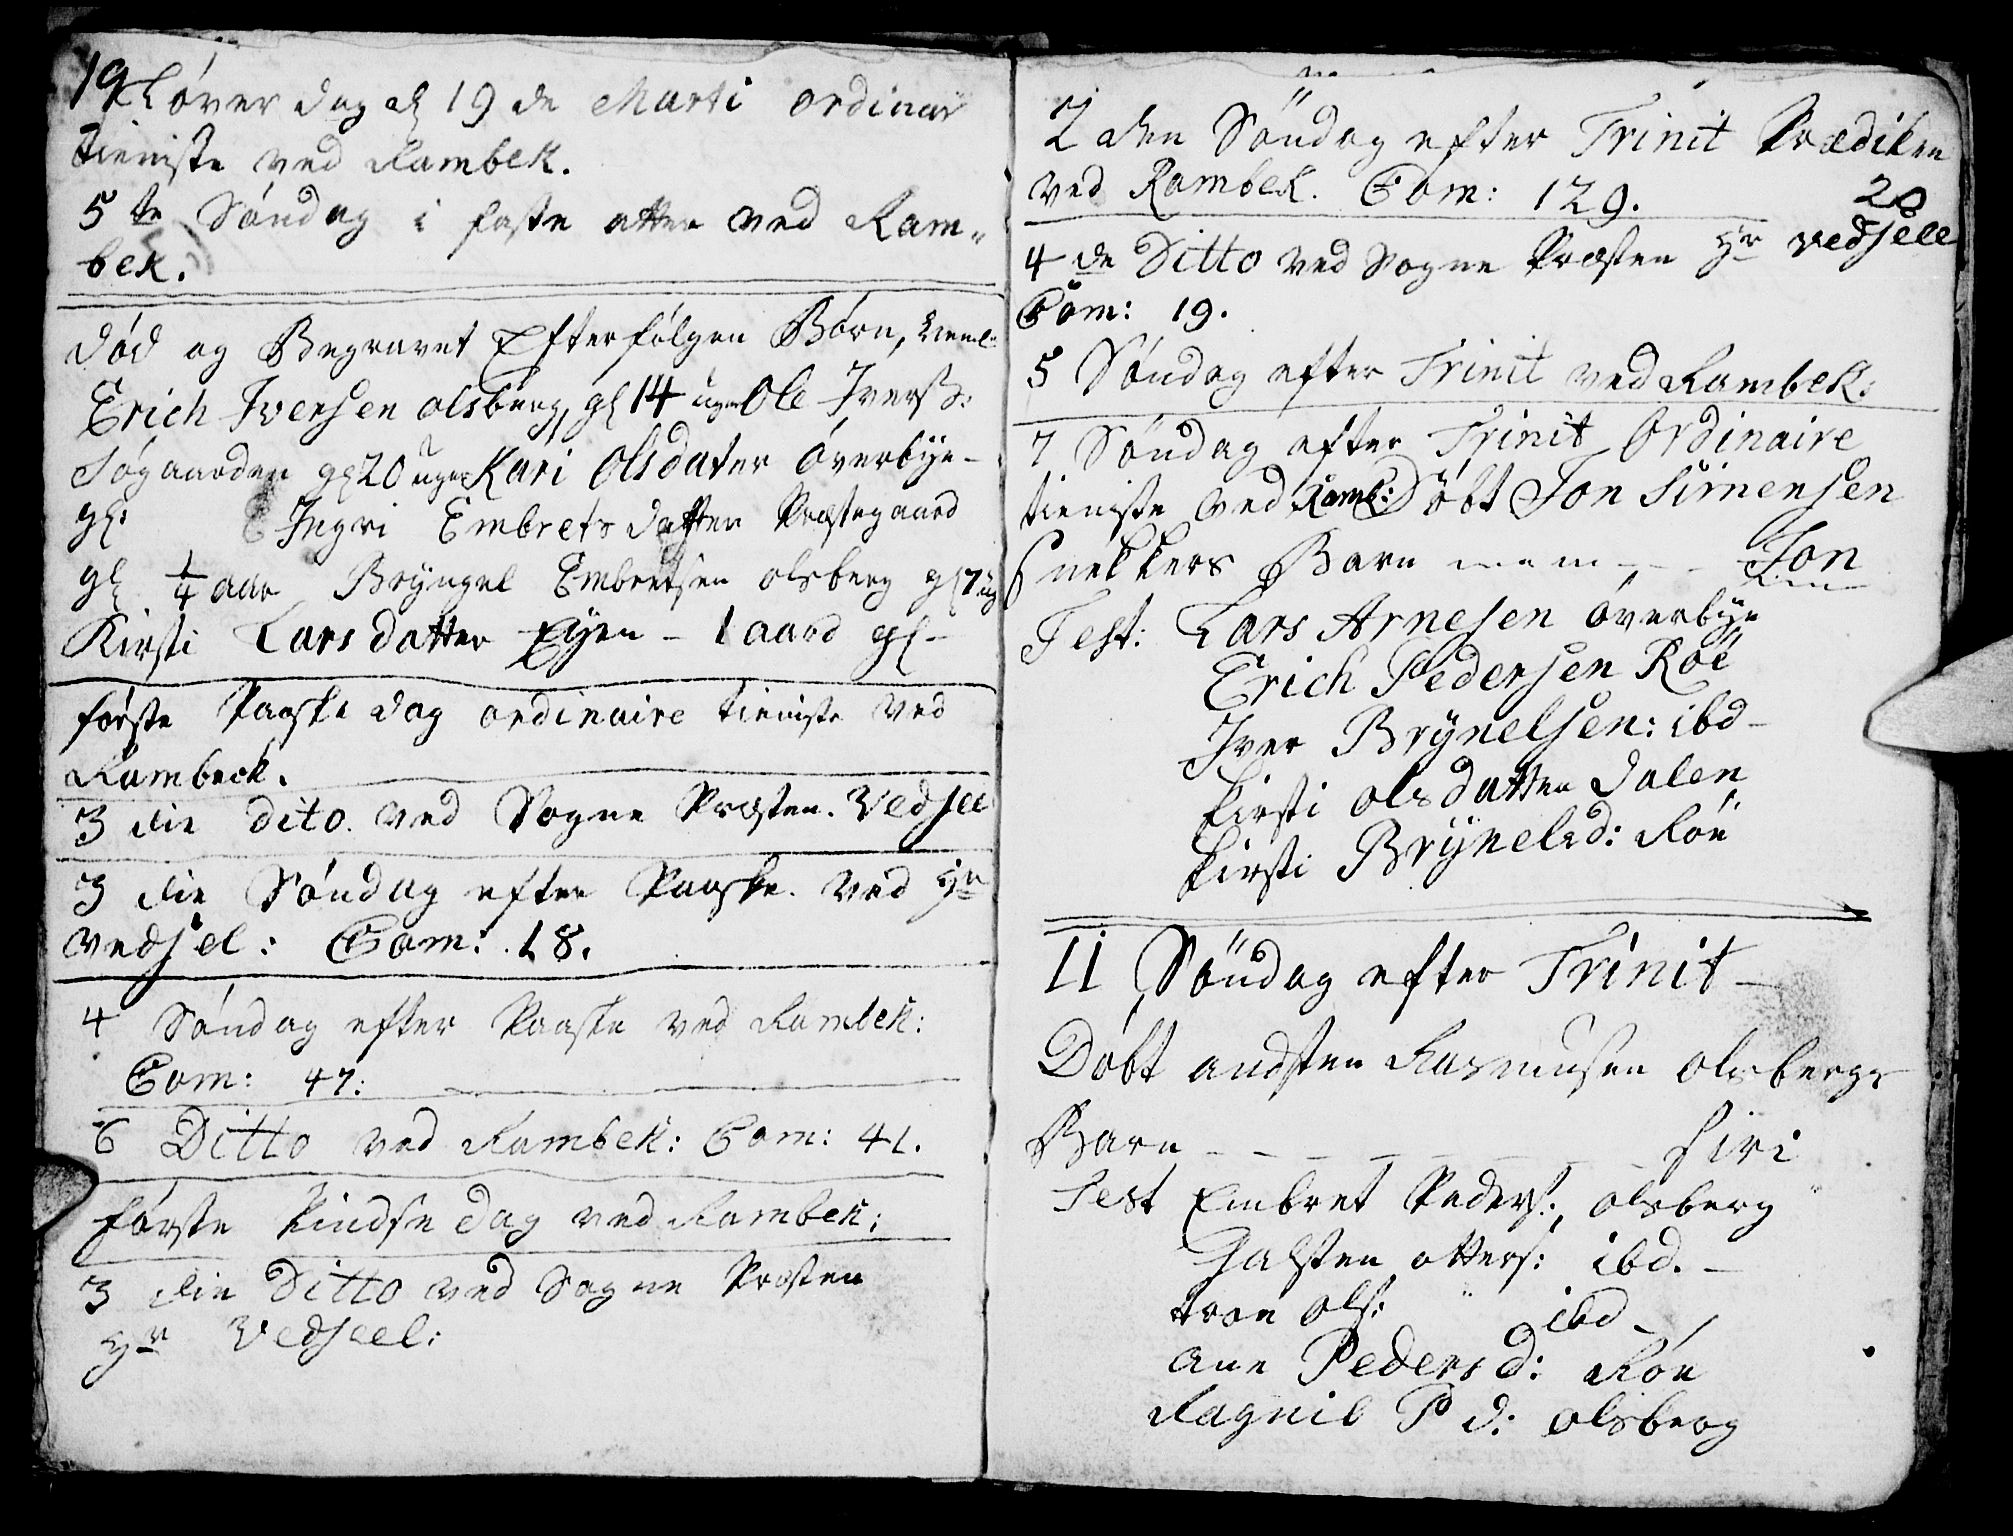 19
Løver dag d 19 de Marti ordinar
tieniste ved Rambek.
5te Søndag i faste atter ved Ram„
bek.
død og Begravet Efterfølgen Børn, Neml:
Erich Iversen olsberg, gl 14 uger Ole Iverss:
Søgaarden gl 20 uger Kari Olsdater Överbye-
gl: Ingri Embrets datter Præstegaard
gl 1/4 aar Bryngel Embretsen olsberg gl 7 ug
Kirsti Lars datter Eyen - 1 aard gl-
første Paaske dag ordinaire tieniste ved
Rambeck.
3 die dito. ved Sogne Præsten. Vedsee
3 die Søndag efter Paaske. ved Hr
vedsel: Com: 18.
4 Søndag efter Paaske ved Rambek:
Com: 47:
6 Ditto ved Rambek: Com: 41.
første Pindse dag ved Rambek:
3 die Ditto ved Sogne Præsten
Hr Vedseel:
2 den Söndag efter Trinit Prædiken
ved Rambek. Com: 129.
20
4 de Ditto ved Sogne Præsten Hr vedsele
Com: 19.
5 Søndag efter Trinit ved Rambek:
7 Søndag efter Trinit Ordinaire
tieniste ved Ramb: Döbt Jon Simensen
Snekkers Barn - - - - Jon
Test: Lars Arnesen överbye
Erich Pedersen Röe
Iver Brynelsen: ibd-
Kirsti olsdatter Dalen
Kirsti Brynelsd: Röe
11 Söndag efter Trinit -
Döbt andsten Rasmusen olsbergs
Barn - - - - - - - Siri
Test Embret Peders:, olsberg
Halsten otters: ibd. -
tron ols: ibd -
ane Pedersd: Röe
Ragnil P d: olsberg